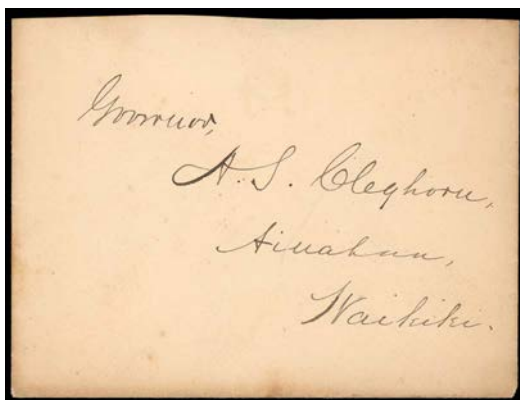 Governor,
A. S. Cleghorn,
Ainahau,
Waikiki.